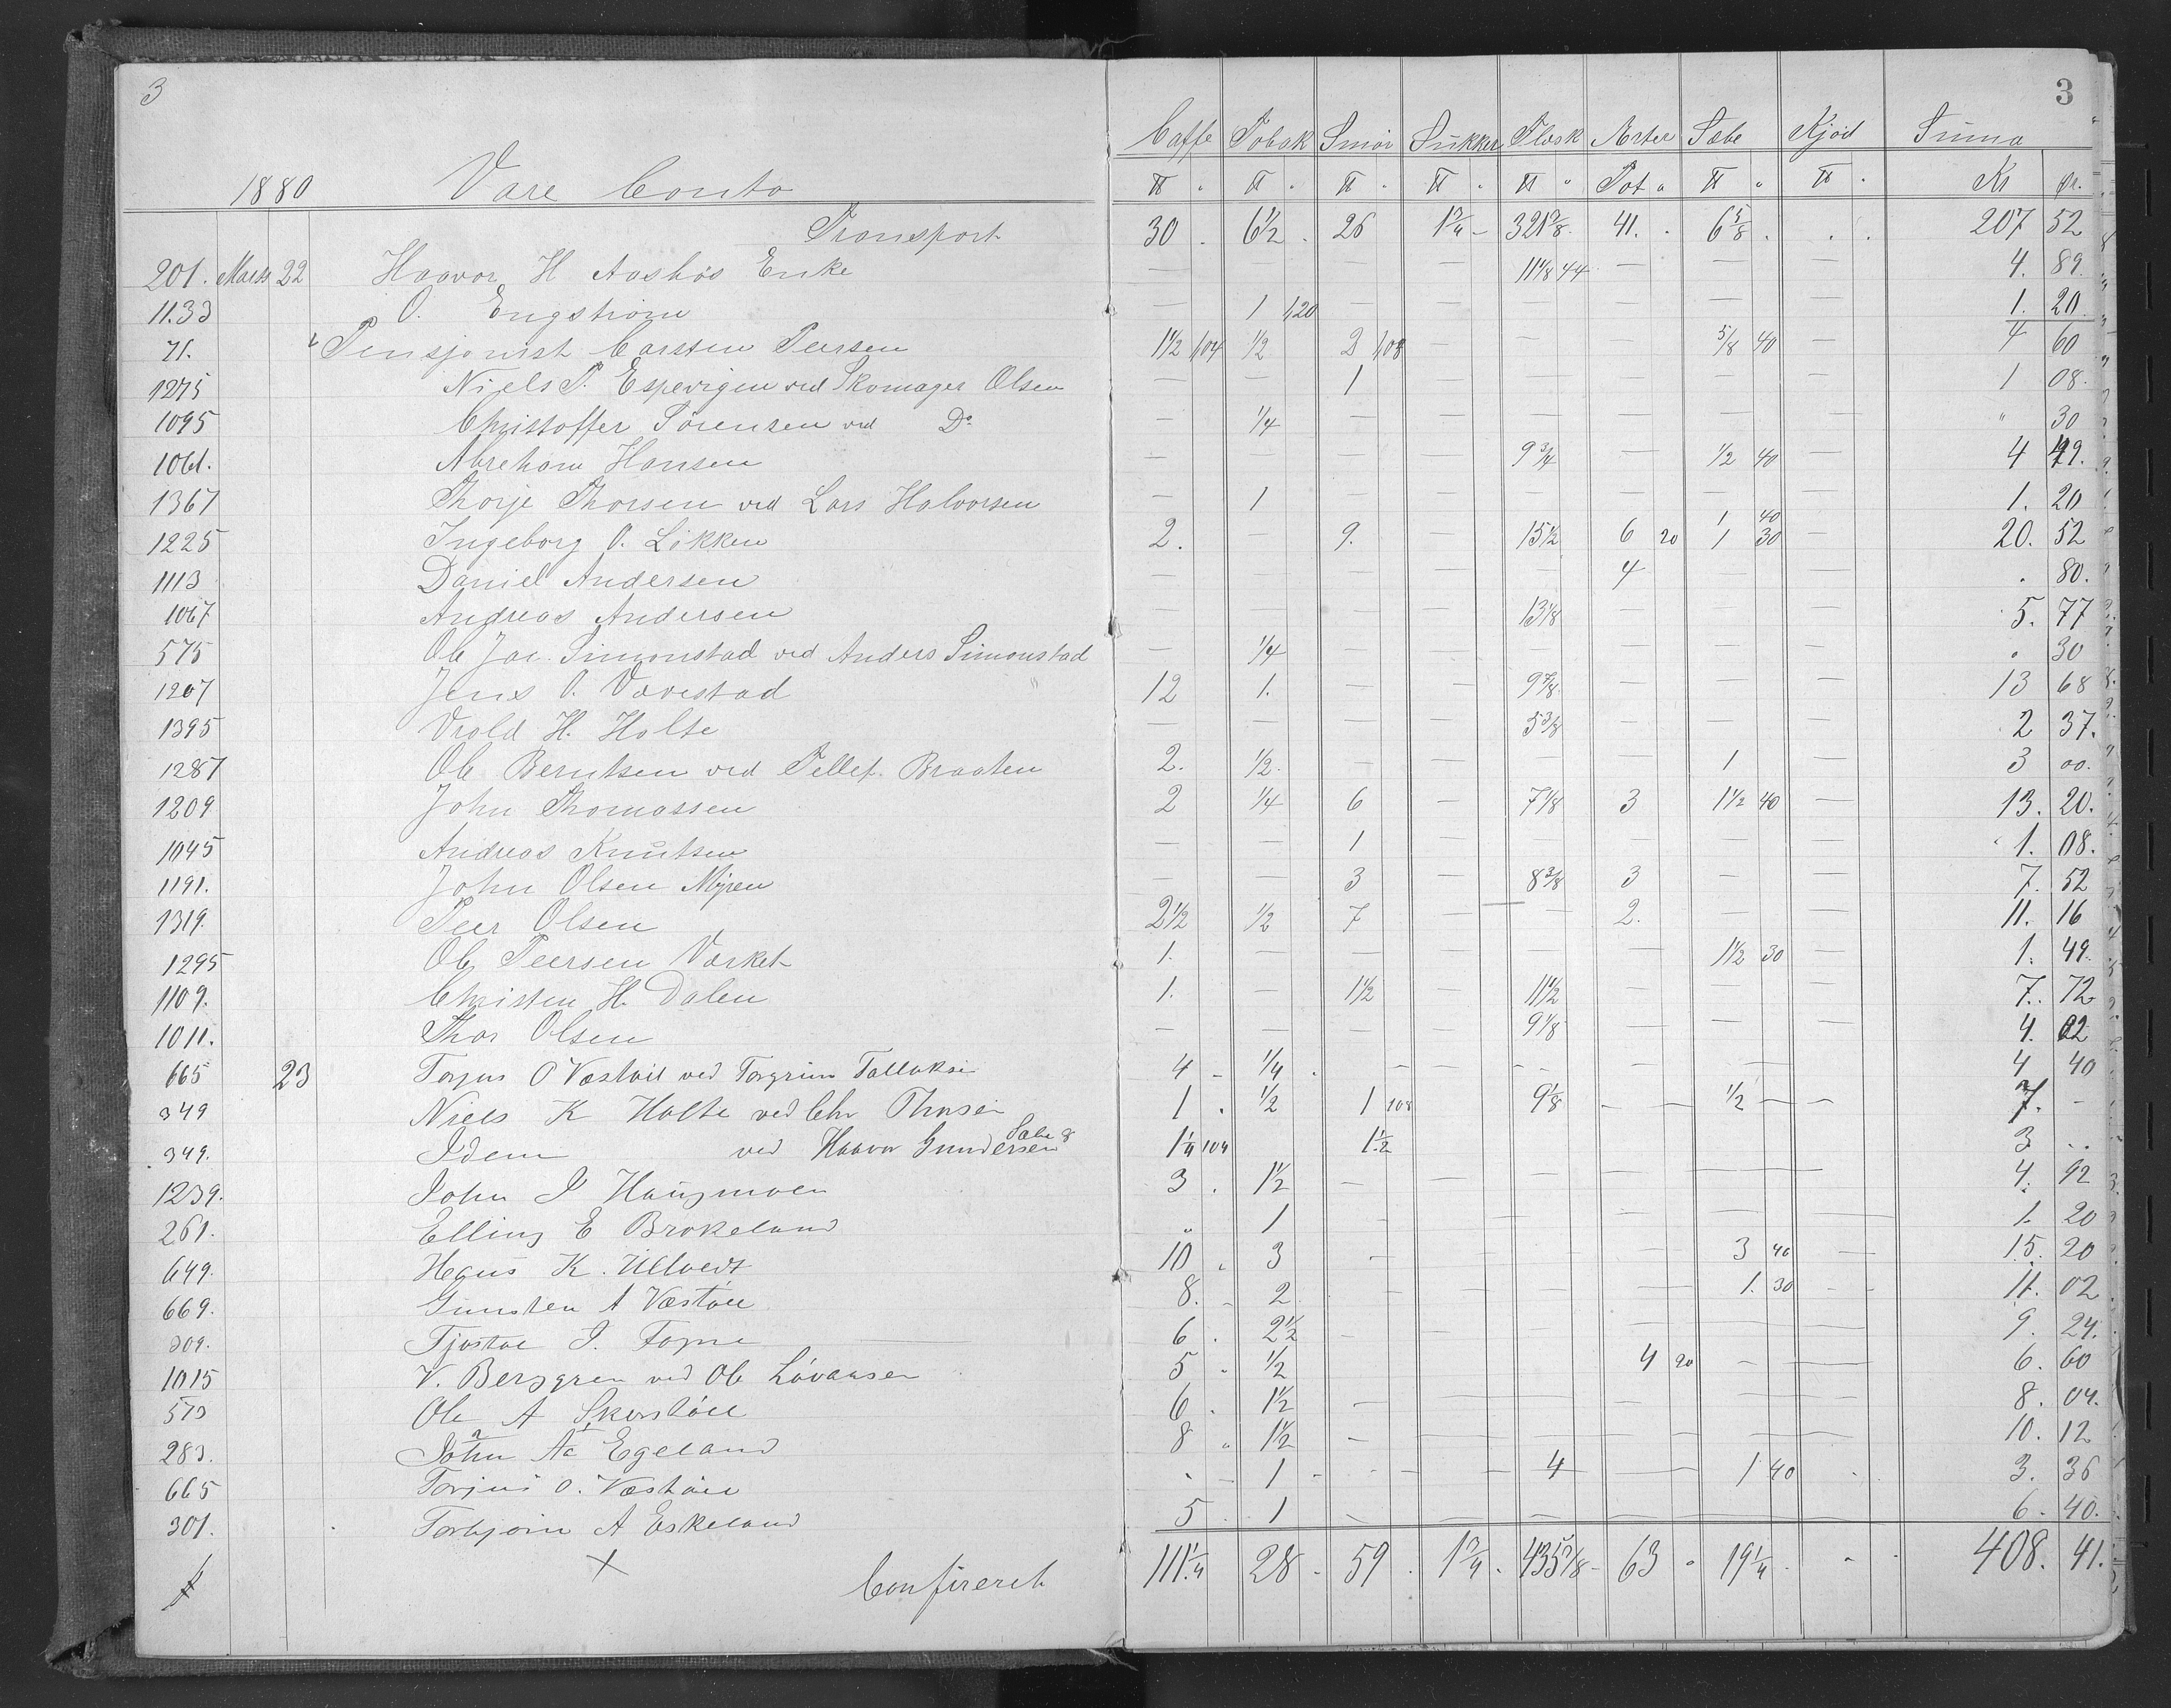 3
3
Caffe Tobak Smör Sukker Flæsk Ærter Sæbe Kjöd Suma
1880 Vare Conto ℔ " ℔ " ℔ " ℔ " ℔ " Pot " ℔ " ℔ " Kr Ør.
Transport 30 . 6½ . 26 1¾ - 321⅜ . 41. . 6⅝ . . . 207 52
201. Marts 22 Haavor H Aashös Enke — — — — 11⅛ 44 — — — 4. 89
1133 O. Engström — 1 120 — — — — — — 1. 20
71. Pensjonist Carsten Peersen 1½ 104 ½ 2 108 — — — ⅝ 40 — 4 60
1275 Niels P. Espevigen ved Skomager Olsen — — 1 — — — — — 1 08.
1095 Christoffer Sörensen ved Do — ¼ — — — — — — " 30
1061. Abreham Hansen — — — — 9¾ — ½ 40 — 4 49.
1367 Thorje Thorsen ved Lars Halvorsen — 1 — — — — — — 1. 20
1 40
1225 Ingeborg O. Lökken 2. — 9. 15½ 6 20 1 30 — 20. 52
1113 Daniel Andersen — — — — — 4 — — . 80.
1067 Andreas Andersen — — — — 13⅛ — — — 5. 77
575 Ole Jac. Simonstad ved Anders Simonstad — ¼ — — — — — — . 30
1207 Jens O. Vævestad 12 1. — — 9⅞ — — — 13 68
1395 Vrold H. Holte — — — — 5⅜ — — — 2 37.
1287 Ole Berntsen ved Tellef. Braaten 2. ½. — — — — 1 — 3 00.
1209 John Thomassen 2 ¼ 6 — 7⅛ 3 1½ 40 — 13. 20.
1045 Andreas Knutsen — — 1 — — — — — 1. 08.
1191. John Olsen Myren — — 3 8⅜ 3 — — 7. 52
1319. Peer Olsen 2½ ½ 7 — — 2. — — 11. 16
1295 Ole Peersen Værket 1. — — — — — 1½ 30 — 1. 49.
1109. Christen H. Dalen 1. — 1½ — 11½ — — — 7. 72
1011. Thor Olsen — — — — 9⅛ — — — 4. 02
665 23 Torjus O Væstöil ved Torgrim Tallaksen 4 - ¼ . - - - - — — 4 40
349 Niels K Holte ved Chr Thorsen 1 . ½ 1 108 9⅛ - - ½ — — 7. -
Sæbe 8
349. Idem ved Haavor Gundersen 1¼ 104 1½ 3 ..
1239. John J Haugmoen 3 . 1½ — — — — — — 4. 92
261. Elling E Brokeland " 1 - — — — — — 1. 20
649. Hans K. Ullvedt 10 . 3 - — 3 40 — 15. 20
669. Gunsten A Væstöil 8. - 2 — — — 1. 30 - - 11. 02
309. Tjostol J. Fogne 6 . 2½ — — — — — — 9. 24.
1015 V. Berggren ved Ole Lövaasen 5 . ½ 4 20 — — 6. 60
573 Ole A Skerstöil 6 . 1½ — — — — — — 8. 04.
283. John Aa Egeland 8 " 1½ — — — — — — 10. 12
665 Torjus O. Væstöil . - 1 - - - — — 4 — 1 40 . 3. 36
301. Torbjörn A Eskeland 5 . 1 — — — — — — 6. 40.
Confereret 111¼ 28 - 59 . 1¾ . 435⅞ - 63 . 19¼ - . - . 408. 41.